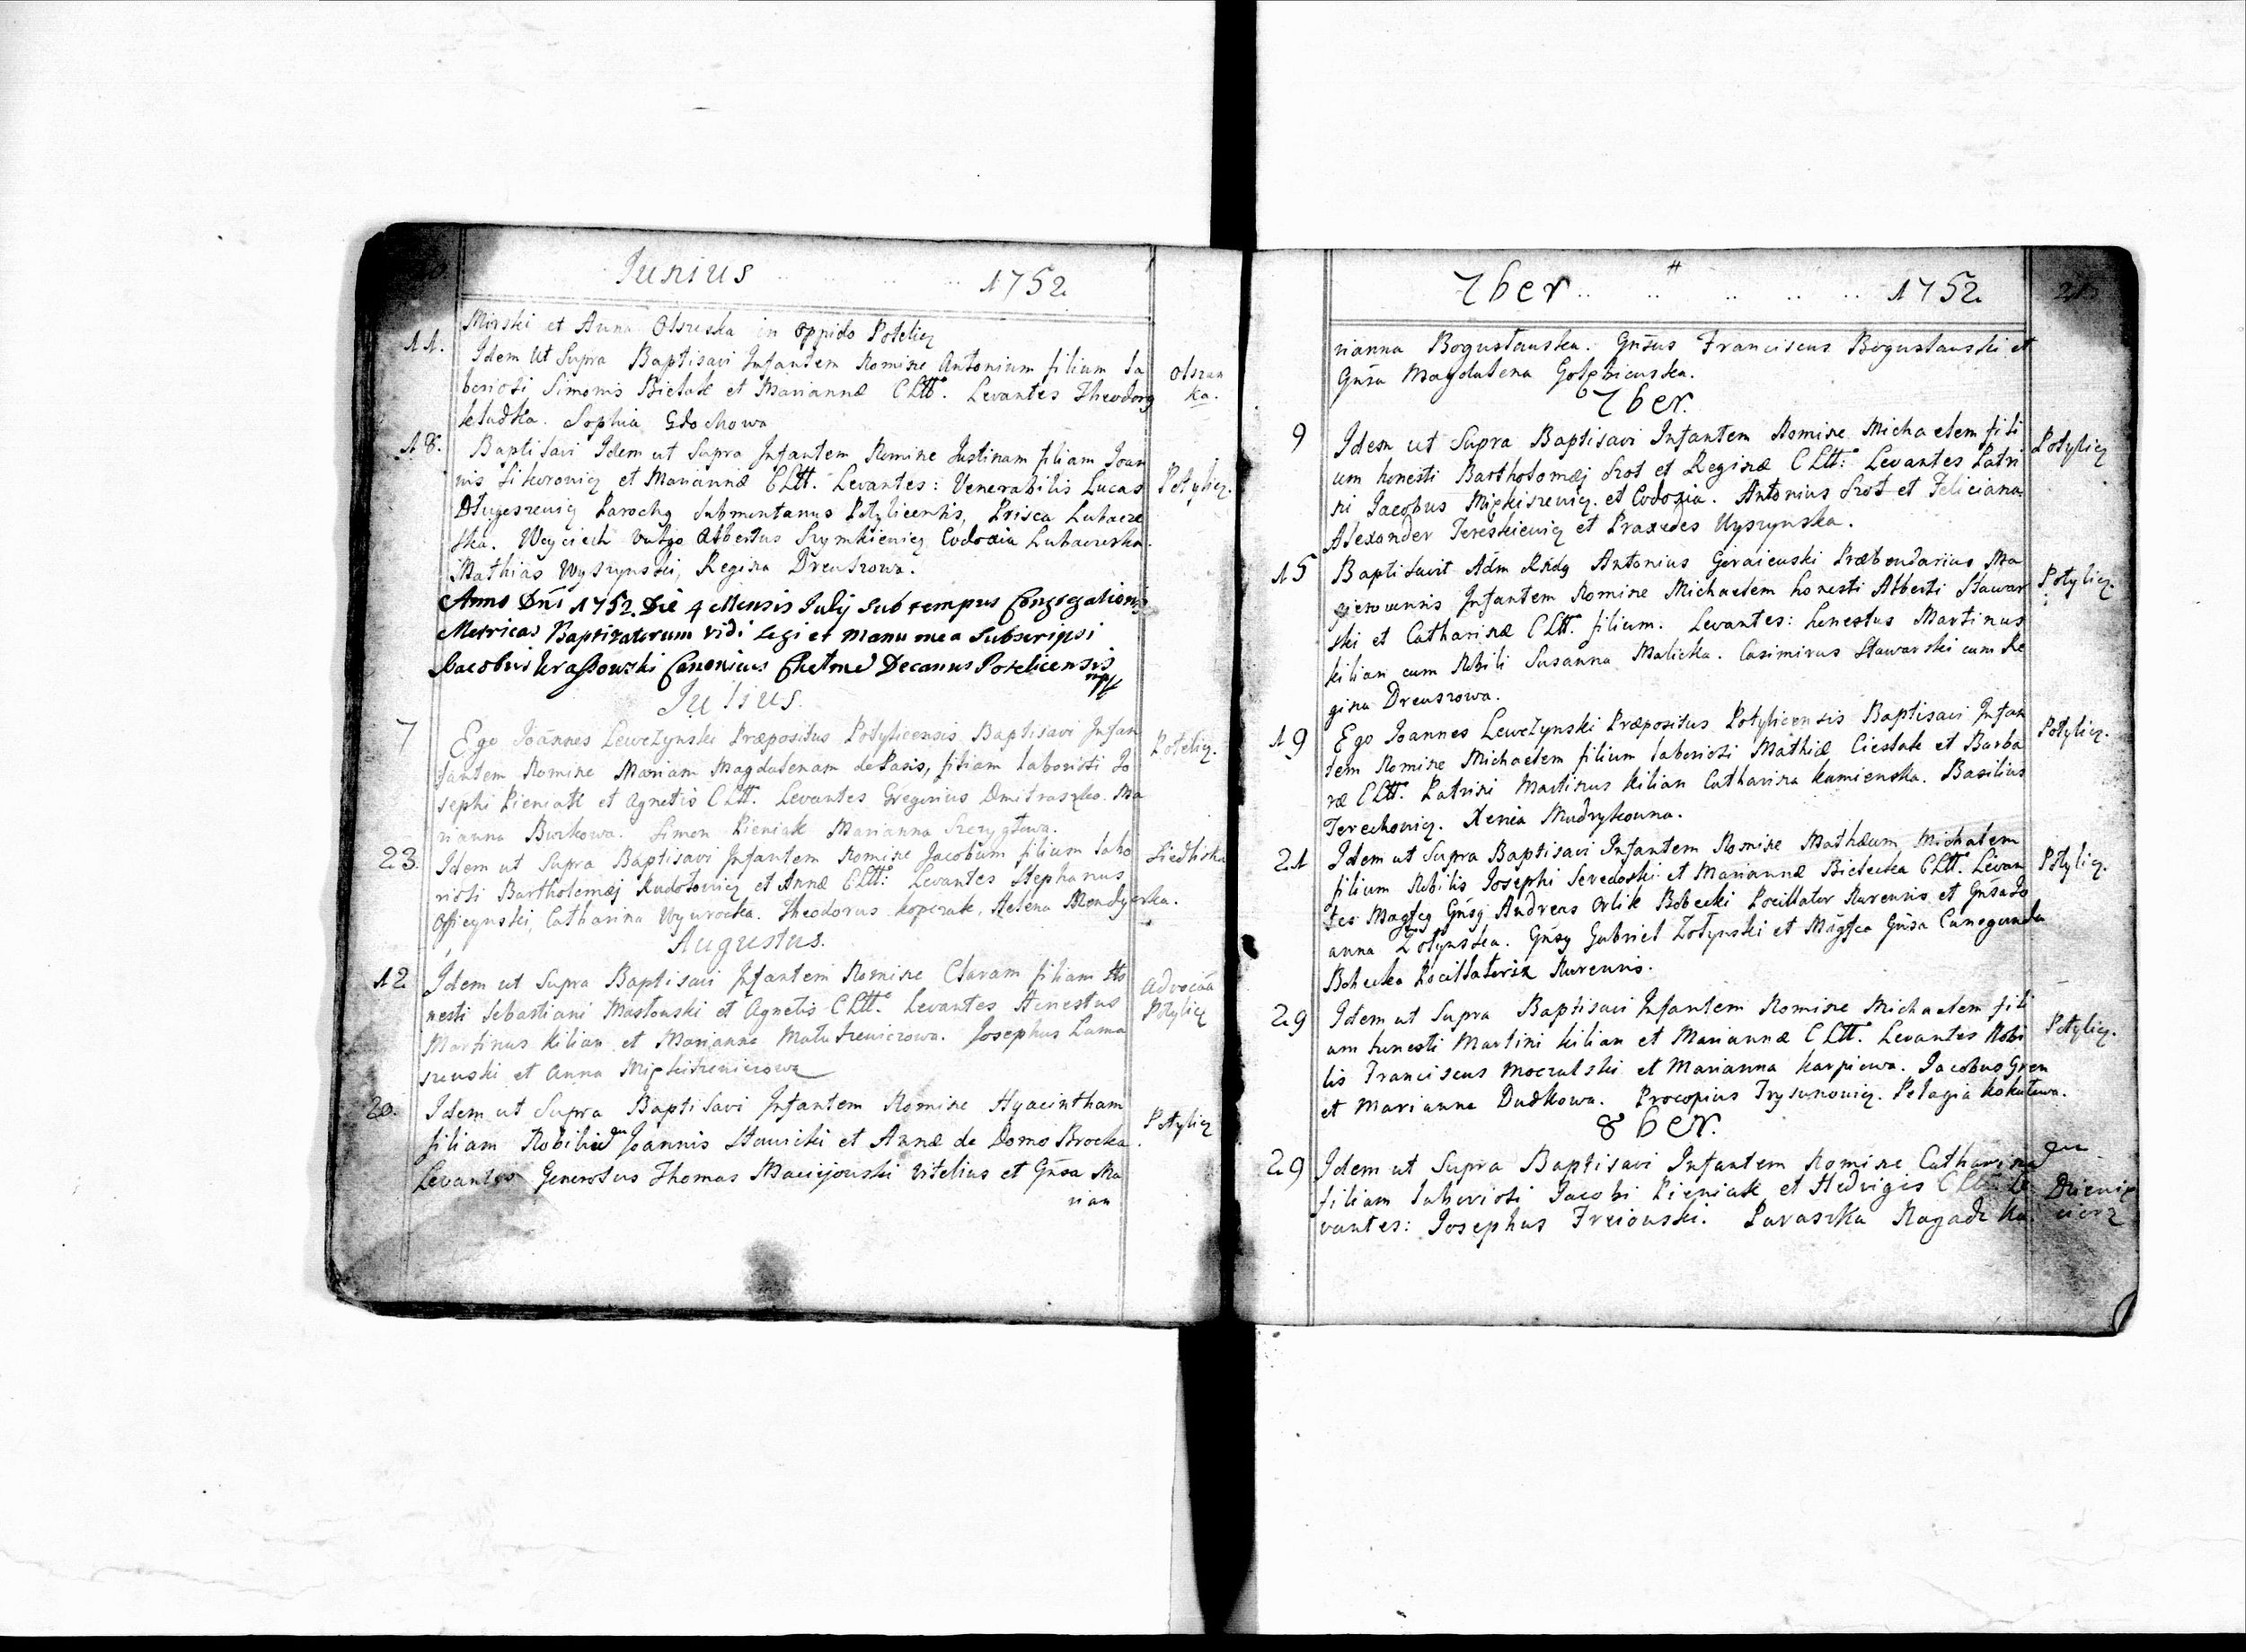 Junius 1752.
Mirski et Anna Olszeska in oppido Potelicz
11. Idem Ut Supra Baptisavi Infantem Nomine Antonium filium la
boriosi Simonis Bielak et Mariannæ CLtt. Levantes Theodorg Olszan
kładka. Sophia Głochowa ka.
18. Baptisavi Idem ut Supra Infantem Nomine Justinam filiam Joan
nis Sikorowicz et Mariannæ CLtt. Levantes: Venerabilis Lucas Potylicz.
Długeszewicz Parochg Submontanus Potylicensis, Prisca Lubacze
ska. Woyciech vulgo Albertus Szymkiewicz Eudoxia Lubaczeska.
Mathias Wyszynski, Regina Drewszowa.
Anno Dni 1752. Die 4 Mensis July Sub tempus Congregationis
Metricas Baptizatorum vidi legi et manu mea Subscripsi
Jacobus Krassowski Canonicus Chelmę Decanus Potelicensis
mpp
Julius.
7 Ego Joannes Lewczynski Præpositus Potylicensis Baptisavi Infan
tantem Nomine Mariam Magdalenam de Pasis, filiam laboriosi Jo Potelicz.
sephi Pieniak et Agnetis CLtt. Levantes Gregorius Dmitraszko. Ma
rianna Burkowa. Simon Pieniak Marianna Szczygłowa.
23. Idem ut Supra Baptisavi Infantem Nomine Jacobum filium labo Siedliska
riosi Bartholomæj Rudolowicz et Annæ CLtt: Levantes Stephanus
Oficynski, Catharina Wywrocka. Theodorus koperak, Helena Mondyerka.
Augustus.
12 Idem ut Supra Baptisavi Infantem Nomine Claram filiam Ho Advocaa
nesti Sebastiani Masłowski et Agnetis CLtt. Levantes Honestus Potylicz
Martinus Kilian et Marianna Matuszewiczowa. Josephus Lama
szewski et Anna Mickiszewiczowa
20. Idem ut Supra Baptisavi Infantem Nomine Hyacintham
filiam Nobilium Joannis Stawicki et Annæ de Domo Brocka. Potylicz
Levantes Generosus Thomas Maciejowski Vitelius et Gnsa Ma
rian
7ber 1752.
rianna Bogusławska. Gnsus Franciscus Bogusławski et
Gnsa Magdalena Golębiewska.
7ber.
9 Idem ut Supra Baptisavi Infantem Nomine Michaelem fili Potylicz
um honesti Bartholomæj Srot et Reginæ CLtt: Levantes Patri
ni Jacobus Mickiszewicz et Eudoxia. Antonius Srot et Feliciana.
Alexander Tereskiewicz et Praxedes Wyszynska.
15 Baptisavit Adm Rndg Antonius Geraiewski Præbendarius Ma Potylicz.
gierovensis Infantem Nomine Michaelem honesti Alberti Stawar
ski et Catharinæ CLtt. filium. Levantes: honestus Martinus
kilian cum Nobili Susanna Malicka. Casimirus Stawarski cum Re
gina Drewszowa.
19 Ego Joannes Lewczynski Præpositus Potylicensis Baptisavi Infan Potylicz.
tem Nomine Michaelem filium laboriosi Mathiæ Cieslak et Barba
ræ CLtt. Patrini Martinus Kilian Catharina kamienska. Basilius
Terechowicz. Xenia Mudrykowna.
21 Idem ut Supra Baptisavi Infantem Nomine Mathæum Michalem Potylicz.
filium Nobilis Josephi Swedoski et Mariannæ Bielecka CLtt. Levan
tes Magfcg Gnsg Andreas Orlik Bobecki Pocillator Rurensis et Gnsa Jo
anna Zołynska. Gnsg Gabriel Zołynski et Magfca Gnsa Cunegunda
Bobecka Pocillatorix Rurensis.
29 Idem ut Supra Baptisavi Infantem Nomine Michaelem fili Potylicz.
um honesti Martini kilian et Mariannæ CLtt. Levantes Nobi
lis Franciscus Moczulski et Marianna karpiowa. Jacobus Gren
et Marianna Dudkowa. Procopius Trysunowicz. Pelagia kokułowa.
8ber.
29 Idem ut Supra Baptisavi Infantem Nomine Catharina
filiam laboriosi Jacobi Pieniak et Hedvigis CLtt. Le
vantes: Josephus Freiowski. Paraszka Nagadzka.